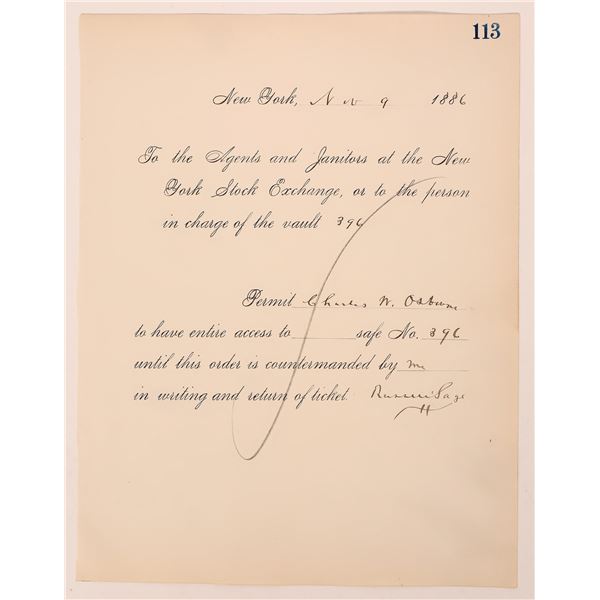 113
New York, Nov 9 1886
To the Agents and Janitors at the New
York Stock Exchange, or to the person
in charge of the vault 396
Permit Charles W. Osborne
to have entire access to safe No. 396
until this order is countermanded by me
in writing and return of ticket. Russell Sage